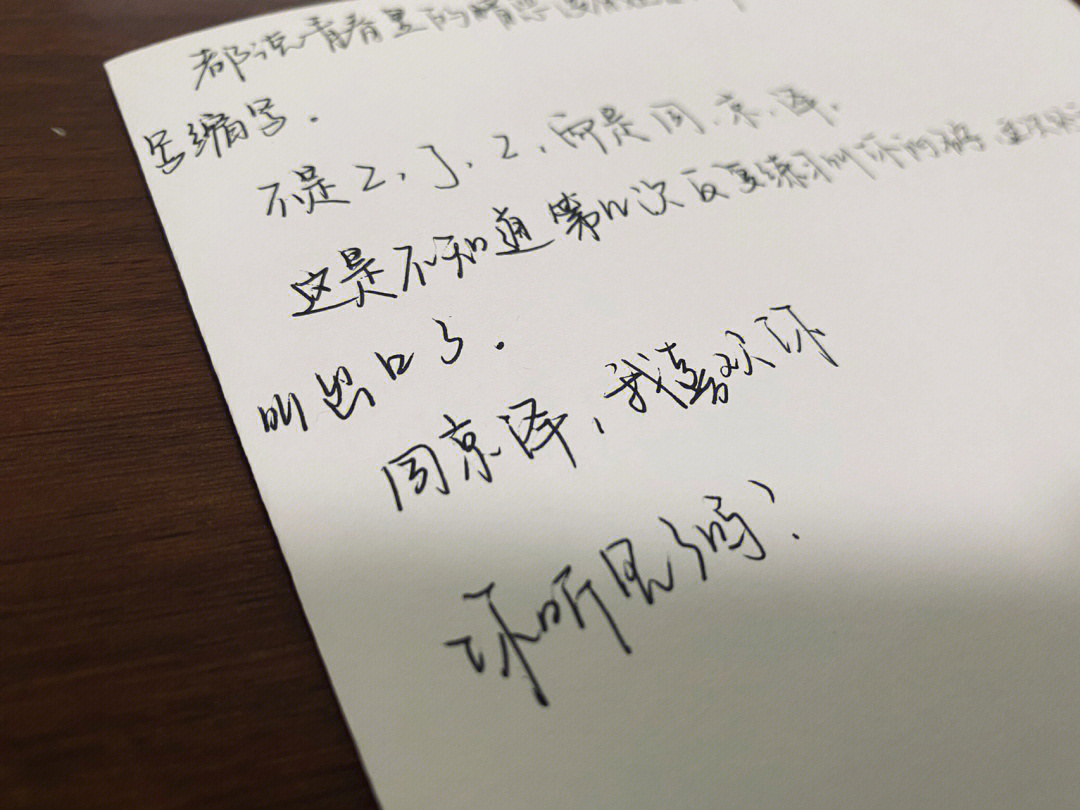 都说青春里的暗恋没有
字缩写.
不是Z、J、Z、而是周.京.泽.
这是不知道第N次反复练习叫你的
叫出口了.
周京泽,我喜欢你
你听见了吗?